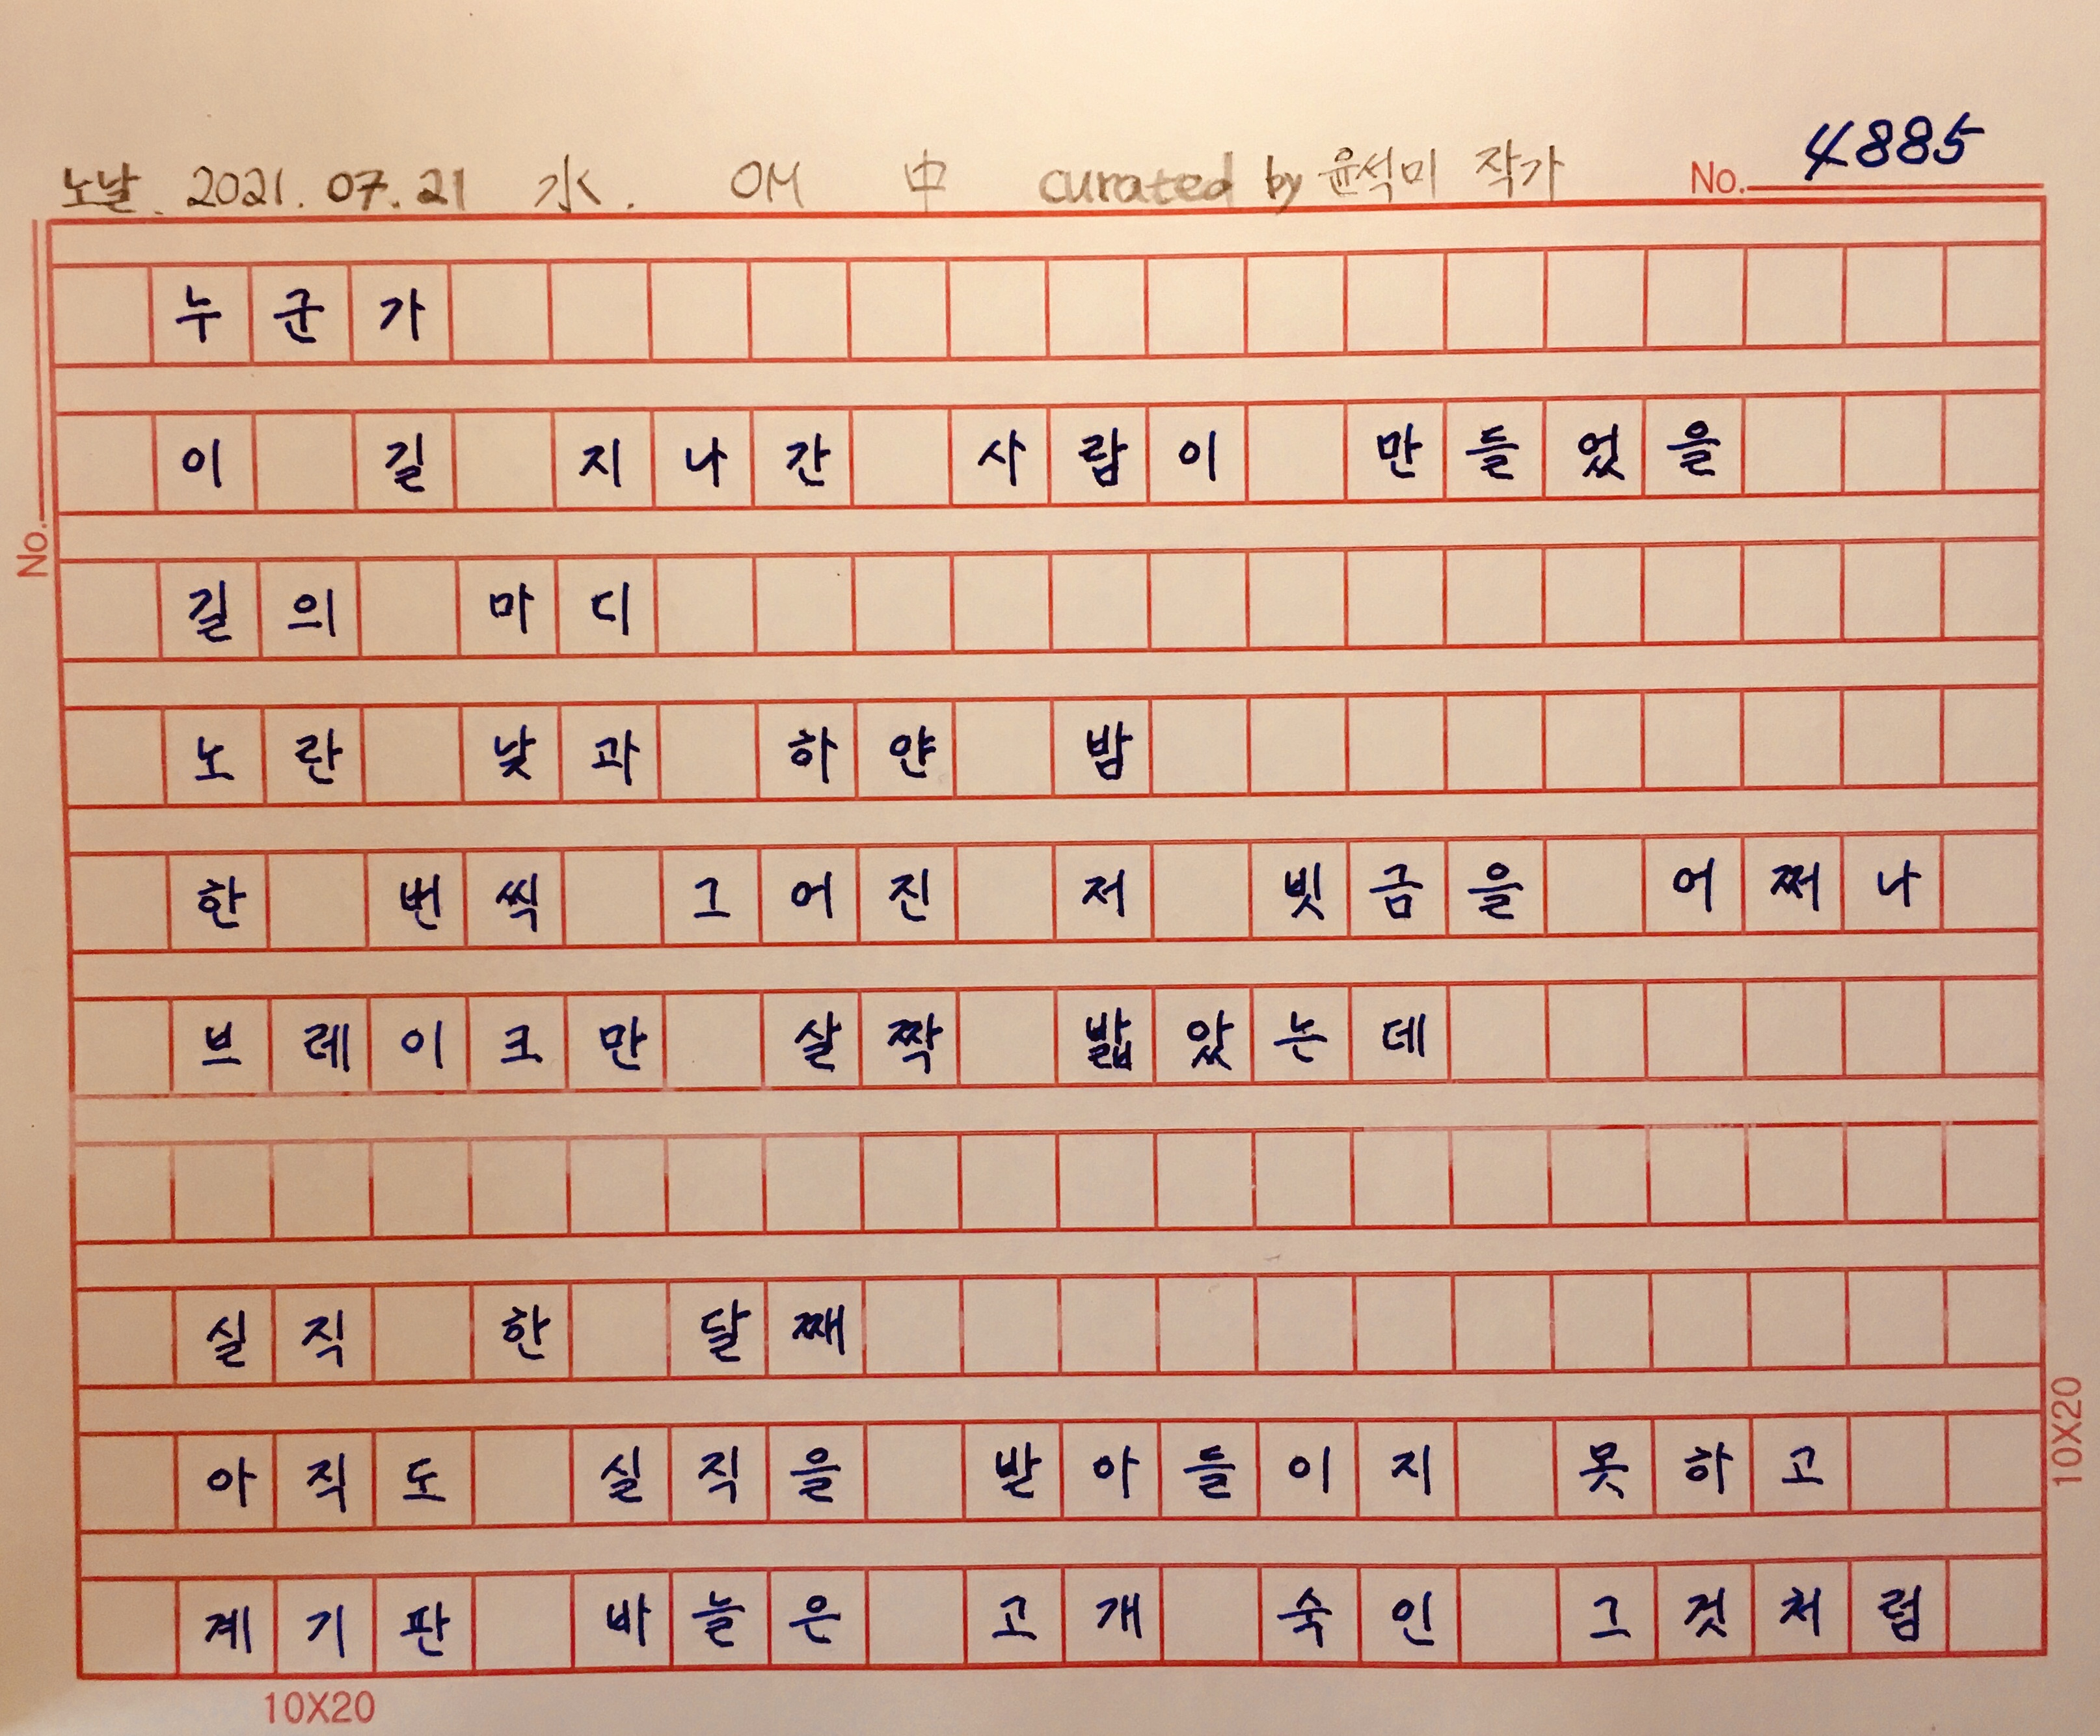 노날. 2021. 07. 21 水. OM 中 curated by 윤석미 작가 No. 4885
누군가
이 길 지나간 사람이 만들었을
No.
길의 마디
노란 낮과 하얀 밤
한 번씩 그어진 저 빗금을 어쩌나
브레이크만 살짝 밟았는데
실직 한 달째
아직도 실직을 받아들이지 못하고
10X20
계기판 바늘은 고개 숙인 그것처럼
10X20